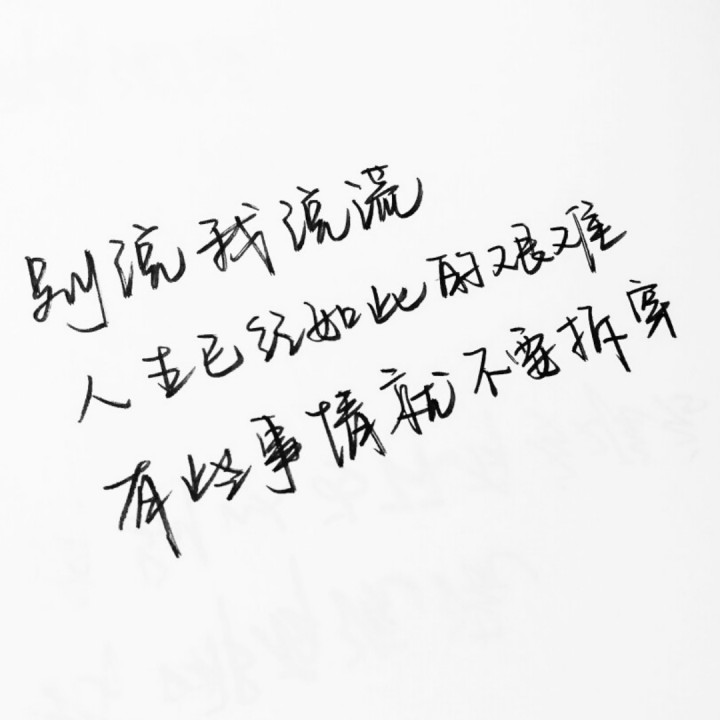 别说我说谎
人生已经如此的艰难
有些事情就不要拆穿